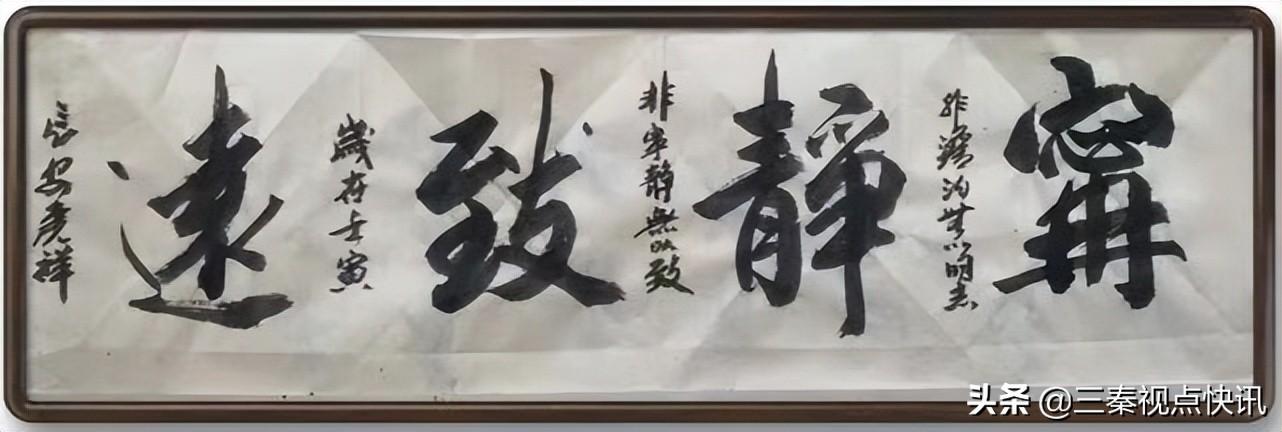 寗
非澹泊無以明志
靜
非寧靜無以致
致
歲在壬寅
遠
長安彦祥
头条 @三秦视点快讯